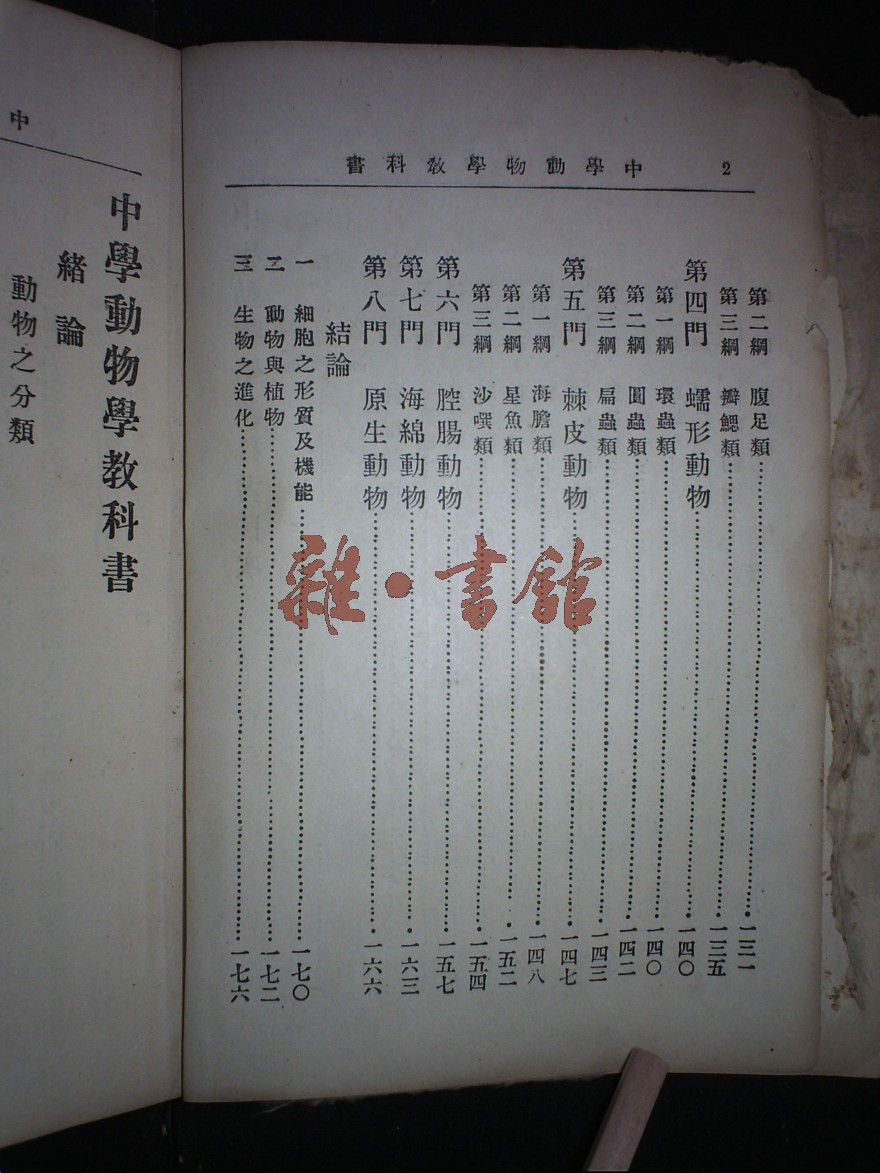 2 中學動物學教科書
第二綱 腹足類……一三一
第三綱 瓣鰓類……一三五
第四門 蠕形動物……一四〇
第一綱 環蟲類……一四〇
第二綱 圓蟲類……一四二
第三綱 扁蟲類……一四三
第五門 棘皮動物……一四七
第一綱 海膽類……一四八
第二綱 星魚類……一五二
第三綱 沙噀類……一五四
第六門 腔腸動物……一五七
第七門 海綿動物……一六三
第八門 原生動物……一六六
結論
一 細胞之形質及機能……一七〇
二 動物與植物……一七二
三 生物之進化……一七六
中
中學動物學教科書
緒論
動物之分類
雜·書館